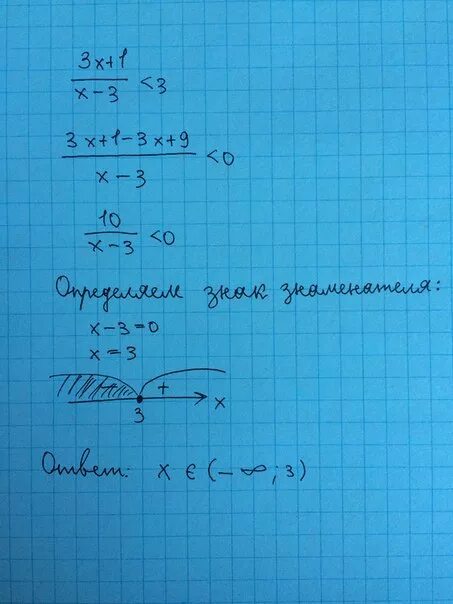 3x+1
x-3 <3
3x+1-3x+9
x-3 <0
10
x-3 <0
Определяем знак знаменателя:
x-3=0
x=3
+
3 x
Ответ: x ∈ (-∞; 3)